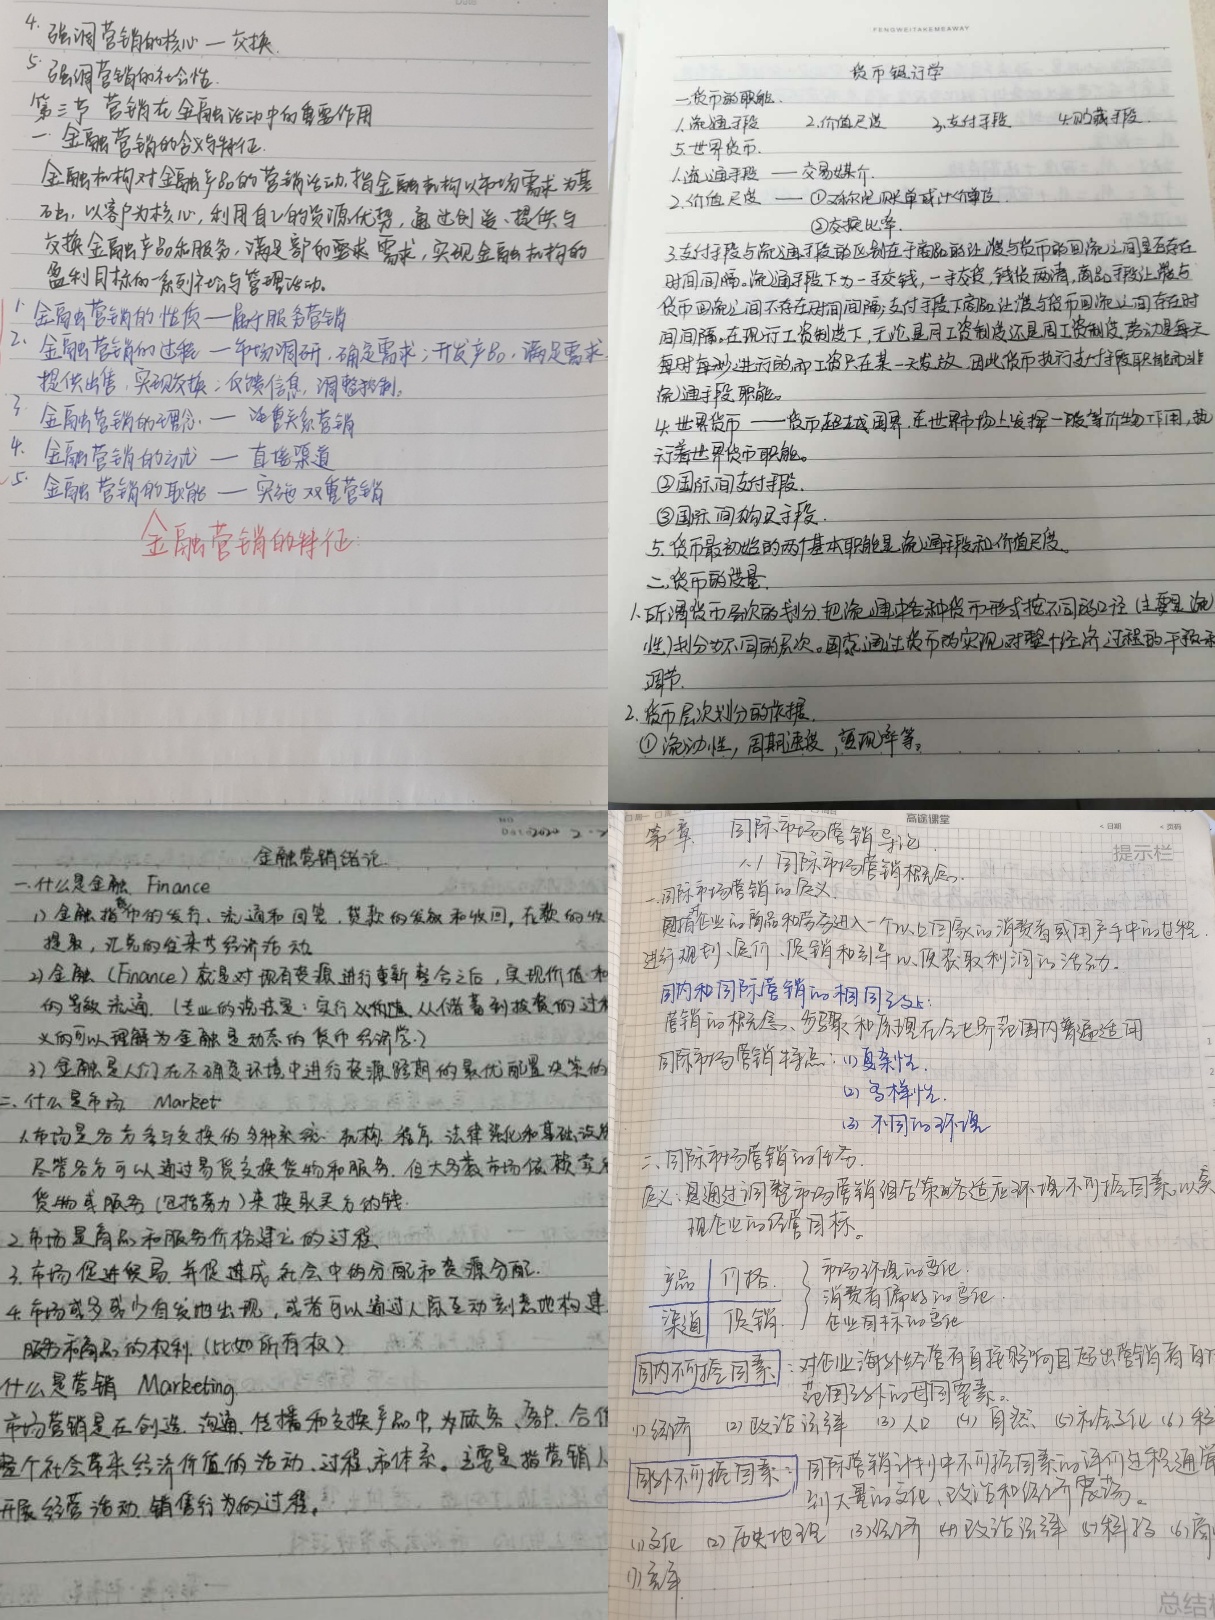 4. 强调营销的核心 — 交换.
5. 强调营销的社会性.
第三节 营销在金融活动中的重要作用
一. 金融营销的含义与特征.
金融机构对金融产品的营销活动,指金融机构以市场需求为基
础,以客户为核心,利用自己的资源优势,通过创造、提供与
交换金融产品和服务,满足客户的需求,实现金融机构的
盈利目标的一系列社会与管理活动.
1. 金融营销的性质—属于服务营销
2. 金融营销的过程 — 市场调研,确定需求;开发产品,满足需求
提供出售,实现交换;反馈信息,调整控制.
3. 金融营销的理念 — 注重关系营销
4. 金融营销的方式 — 直接渠道
5. 金融营销的职能 — 实施双重营销
金融营销的特征
FENGWEITAKEMEAWAY
货币银行学
一.货币的职能.
1.流通手段 2.价值尺度 3.支付手段 4.贮藏手段.
5.世界货币.
1.流通手段 —— 交易媒介.
2.价值尺度 —— ①
②交换比率.
3.支付手段与流通手段的区别在于商品的让渡与货币的回流之间是否存在
时间间隔。流通手段下为一手交钱,一手交货,钱货两清,商品手段让渡与
货币回流之间不存在时间间隔;支付手段下商品让渡与货币回流之间存在时
间间隔.在现行工资制度下,无论是月工资制度还是周工资制度,劳动是每天
每时每秒进行的而工资只在某一天发放.因此货币执行支付手段职能而非
流通手段职能。
4.世界货币 —— 货币超越国界.在世界市场上发挥一般等价物作用,执
行着世界货币职能。
②国际间支付手段.
③国际间购买手段.
5.货币最初始的两个基本职能是流通手段和价值尺度。
二.货币的度量.
1.所谓货币层次的划分把流通中各种货币形式按不同的口径(主要是流
性)划分为不同的层次。国家通过货币的实现对整个经济过程的干预和
调节.
2.货币层次划分的依据.
①流动性,周期速度,变现率等。
NO
Date 2024 2.2
金融营销绪论.
一.什么是金融 Finance
1) 金融指货币的发行、流通和回笼,贷款的发放和收回,存款的收
提取,汇兑的往来等经济活动.
2) 金融(Finance)就是对现有资源进行重新整合之后,实现价值和
的等效流通. (专业的说法是:实行从价值,从储蓄到投资的过程
义的可以理解为金融是动态的货币经济学.)
3) 金融是人们在不确定环境中进行资源跨期的最优配置决策的
二. 什么是市场 Market
1.市场是各方参与交换的多种系统.机构.程序.法律强化和基础设施
尽管各方可以通过易货交换货物和服务.但大多数市场依赖卖
货物或服务(包括劳力)来换取买方的钱.
2.市场是商品和服务价格建立的过程.
3.市场促进贸易.并促进成社会中的分配和资源分配.
4.市场或多或少自发地出现,或者可以通过人际互动刻意地构建.
服务和商品的权利.(比如所有权)
什么是营销 Marketing
市场营销是在创造、沟通、传播和交换产品中,为顾客、客户、合作
整个社会带来经济价值的活动、过程和体系。主要是指营销人
开展经营活动、销售行为的过程。
高途课堂
< 日期 < 页码
提示栏
第一章. 国际市场营销导论.
1.1 国际市场营销概念.
一.国际市场营销的定义
是指企业的商品和劳务进入一个以上国家的消费者或用户手中的过程.
进行规划、定价、促销和引导以便获取利润的活动.
国内和国际营销的相同之处:
营销的概念、步骤和原理在全世界范围内普遍适用
国际市场营销特点: (1)复杂性.
(2) 多样性.
(3) 不同的环境
二.国际市场营销的任务.
定义:是通过调整市场营销组合策略适应环境不可控因素,以实
现企业的经营目标。
产品 价格. 市场环境的变化.
消费者偏好的变化.
渠道 促销. 企业目标的变化
国内不可控因素:对企业海外经营有直接影响且超出营销者
范围之外的母国要素。
(1)经济 (2)政治法律 (3)人口 (4)自然 (5)社会文化 (6)科
国外不可控因素:国际营销计划中不可控因素的评价过程通常
到大量的文化、政治和经济震荡。
(1)文化 (2)历史地理 (3)经济 (4)政治法律 (5)科技 (6)商
(7)竞争
总结栏